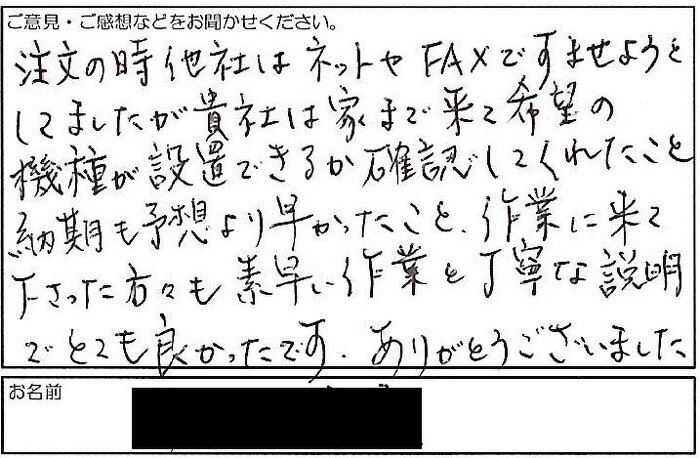 ご意見・ご感想などをお聞かせください。
注文の時他社はネットや FAXですませようと
してましたが貴社は家まで来て希望の
機種が設置できるか確認してくれたこと
納期も予想より早かったこと、作業に来て
下さった方々も素早い作業と丁寧な説明
でとても良かったです. ありがとうございました
お名前